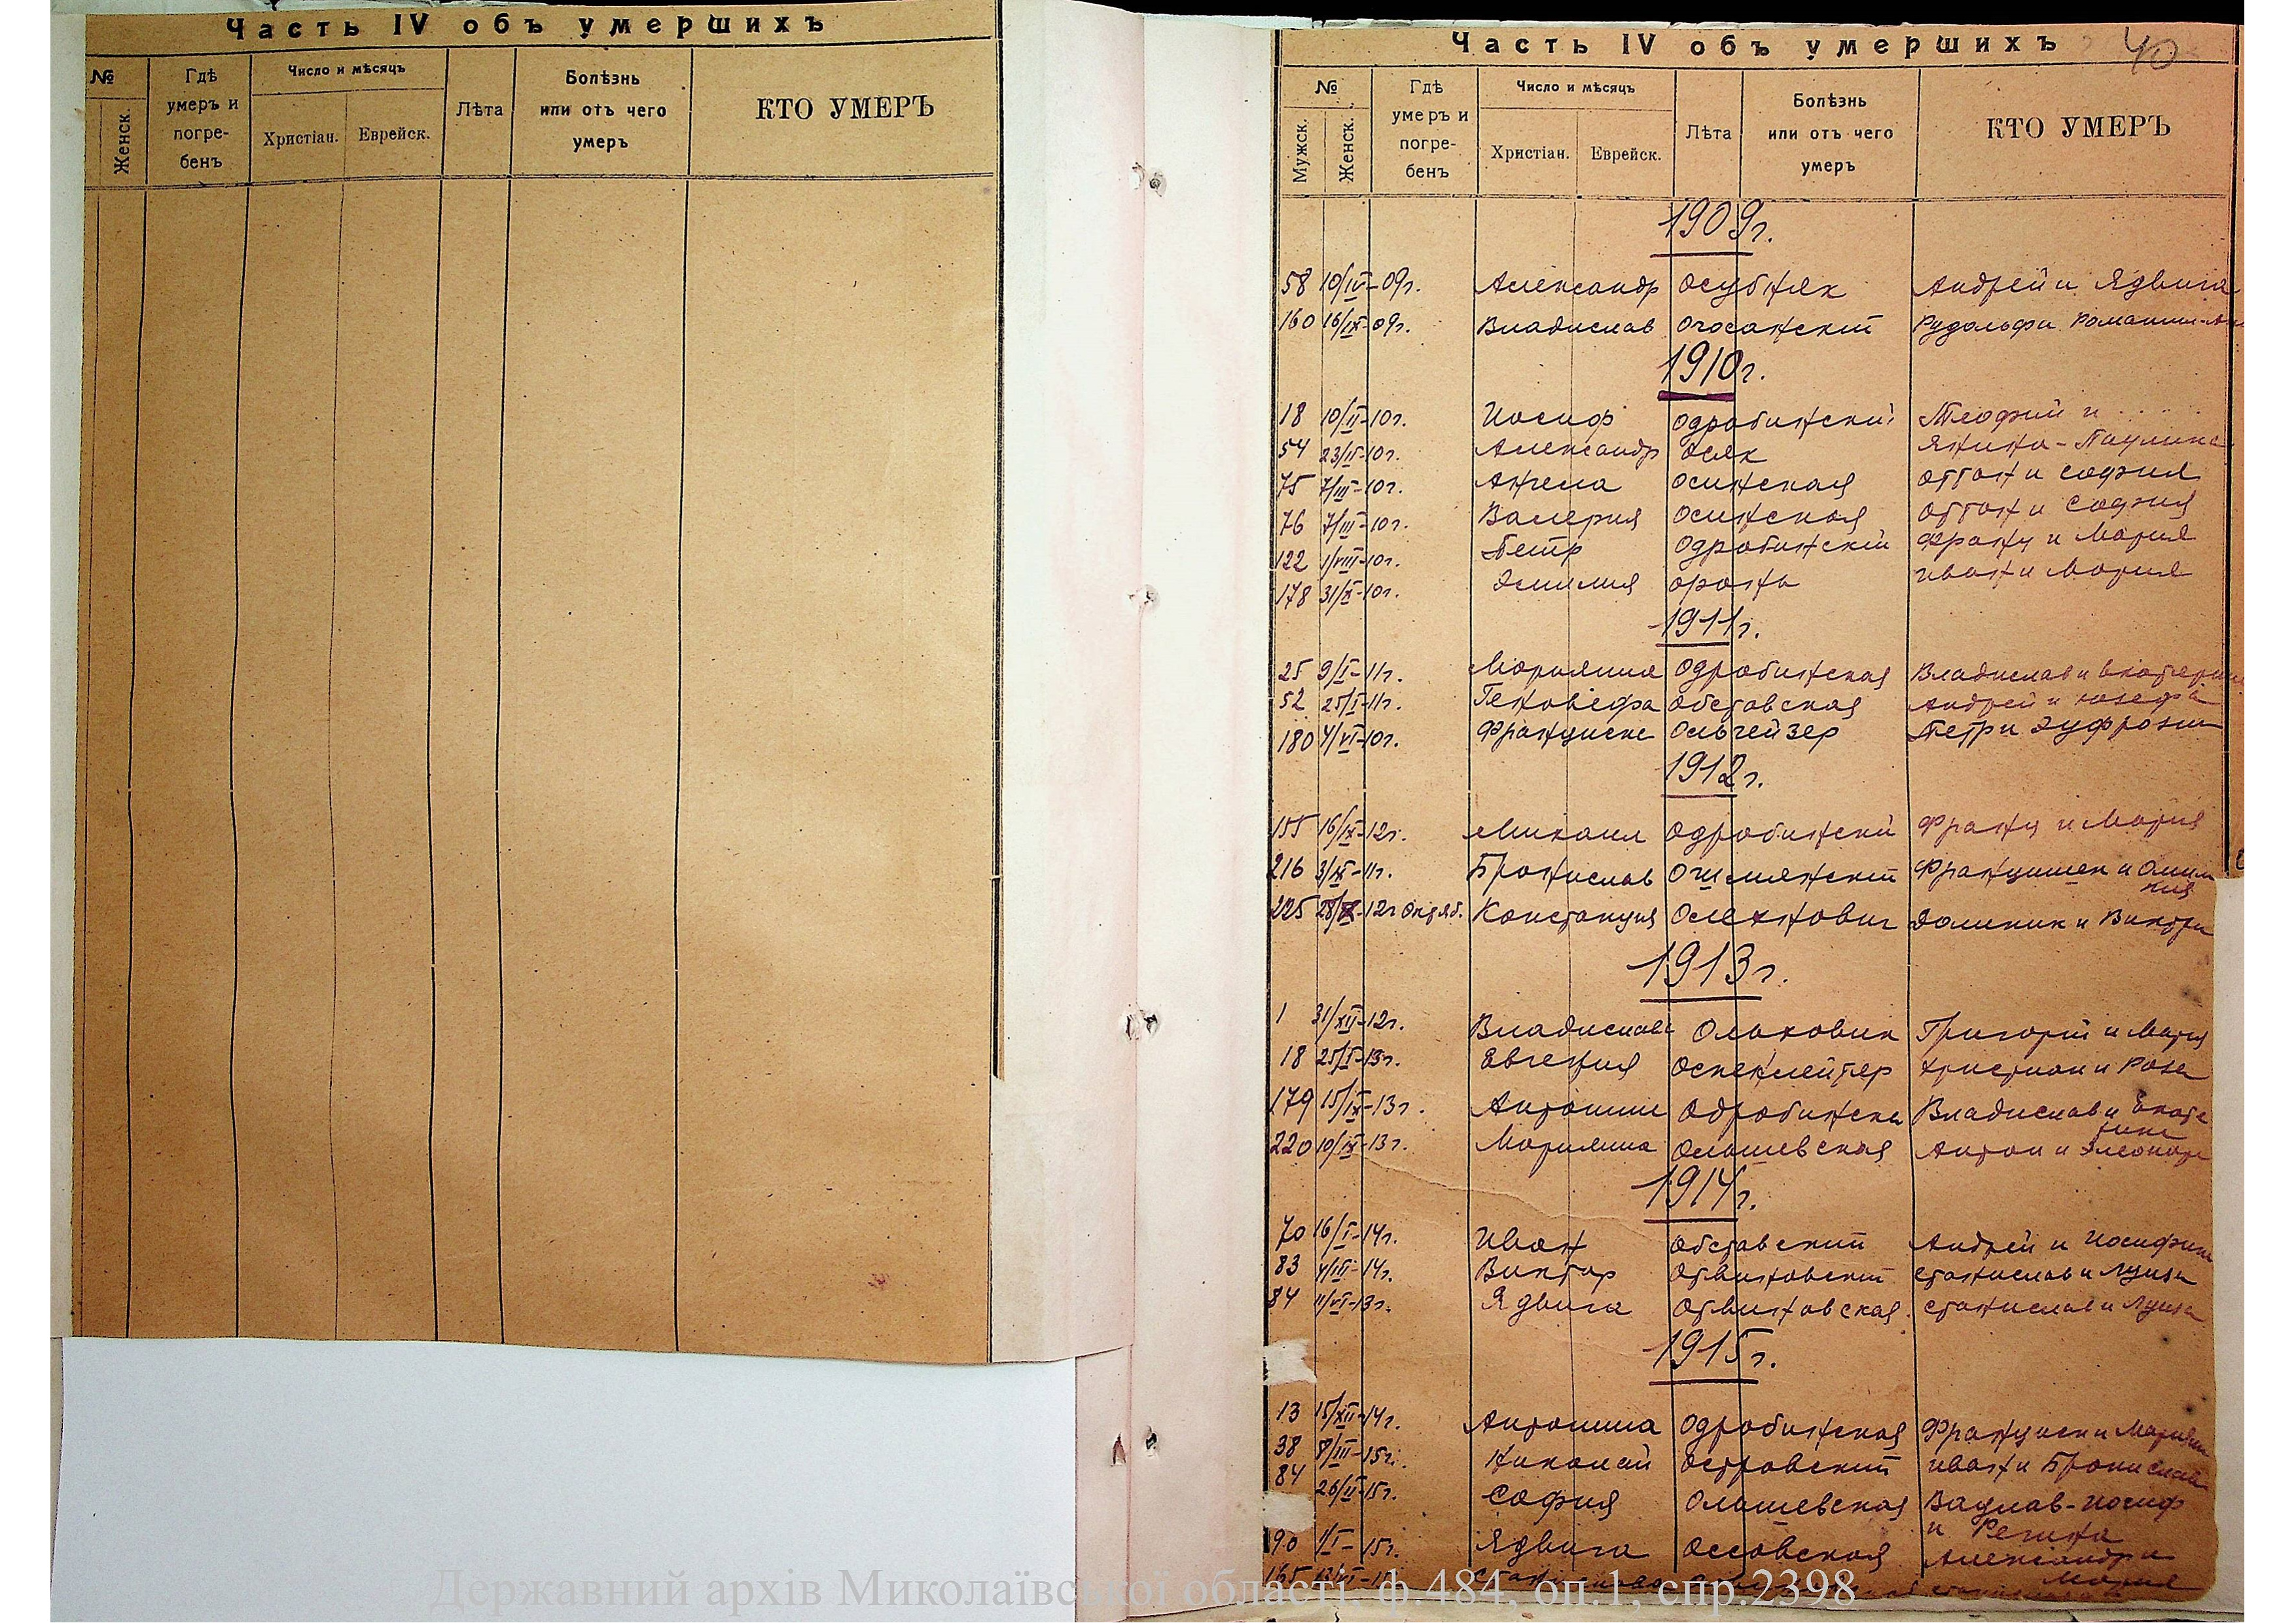 Часть IV объ умершихъ
№ Гдѣ умеръ и погре- бенъ Число и мѣсяцъ Лѣта Болѣзнь или отъ чего умеръ КТО УМЕРЪ
Женск. Христіан. Еврейск.
Часть IV объ умершихъ 40
№ Гдѣ умеръ и погре- бенъ Число и мѣсяцъ Лѣта Болѣзнь или отъ чего умеръ КТО УМЕРЪ
Мужск. Женск. Христіан. Еврейск.
1909г.
58 10/IV-09г. Александр Осубняк Андрей и Ядвига
160 16/IX-09г. Владислав Рудольф и
1910г.
18 10/II-10г. Иосиф Одробинский Теофил и ....
54 23/II-10г. Александр Осяк Янина-Паулина
75 7/III-10г. Ангела Осинская Оттон и София
76 7/III-10г. Валерия Осинская Оттон и София
122 1/VIII-10г. Петр Одробинский Франц и Мария
178 31/X-10г. Эмилия Орань Иван и Мария
1911г.
25 9/I-11г. Марьянна Одробинская Владислав и Екатерина
52 25/I-11г. Геновефа Обставская Андрей и Юзефа
180 4/VI-10г. Ольчейзер Петр и
1912г.
155 16/IX-12г. Михаил Одробинский Франц и Мария
216 3/IX-11г. Бронислав Ошмянский Францишек и
225 28/X-12г Октяб. Констанция Олехнович Доминик и
1913г.
1 31/XII-12г. Владислав Григорий и Мария
18 25/I-13г. Евгения Христиан и Роза
179 15/IX-13г. Владислав и
220 10/IX-13г. Марьянна Ольшевская Антон и
1914г.
70 16/I-14г. Иван Обставский Андрей и
83 Виктор Отвиновский Станислав и Луиза
84 11/VI-13г. Ядвига Отвиновская Станислав и Луиза
1915г.
13 15/XII-14г. Антонина Одробинская
38 8/III-15г. Николай Островский Иван и
84 26/II-15г. София Ольшевская Вацлав-Иосиф
и Регина
90 1/I-15г. Ядвига Оссовская Александр и
Мария
165
Державний архів Миколаївської області. ф.484, оп.1, спр.2398